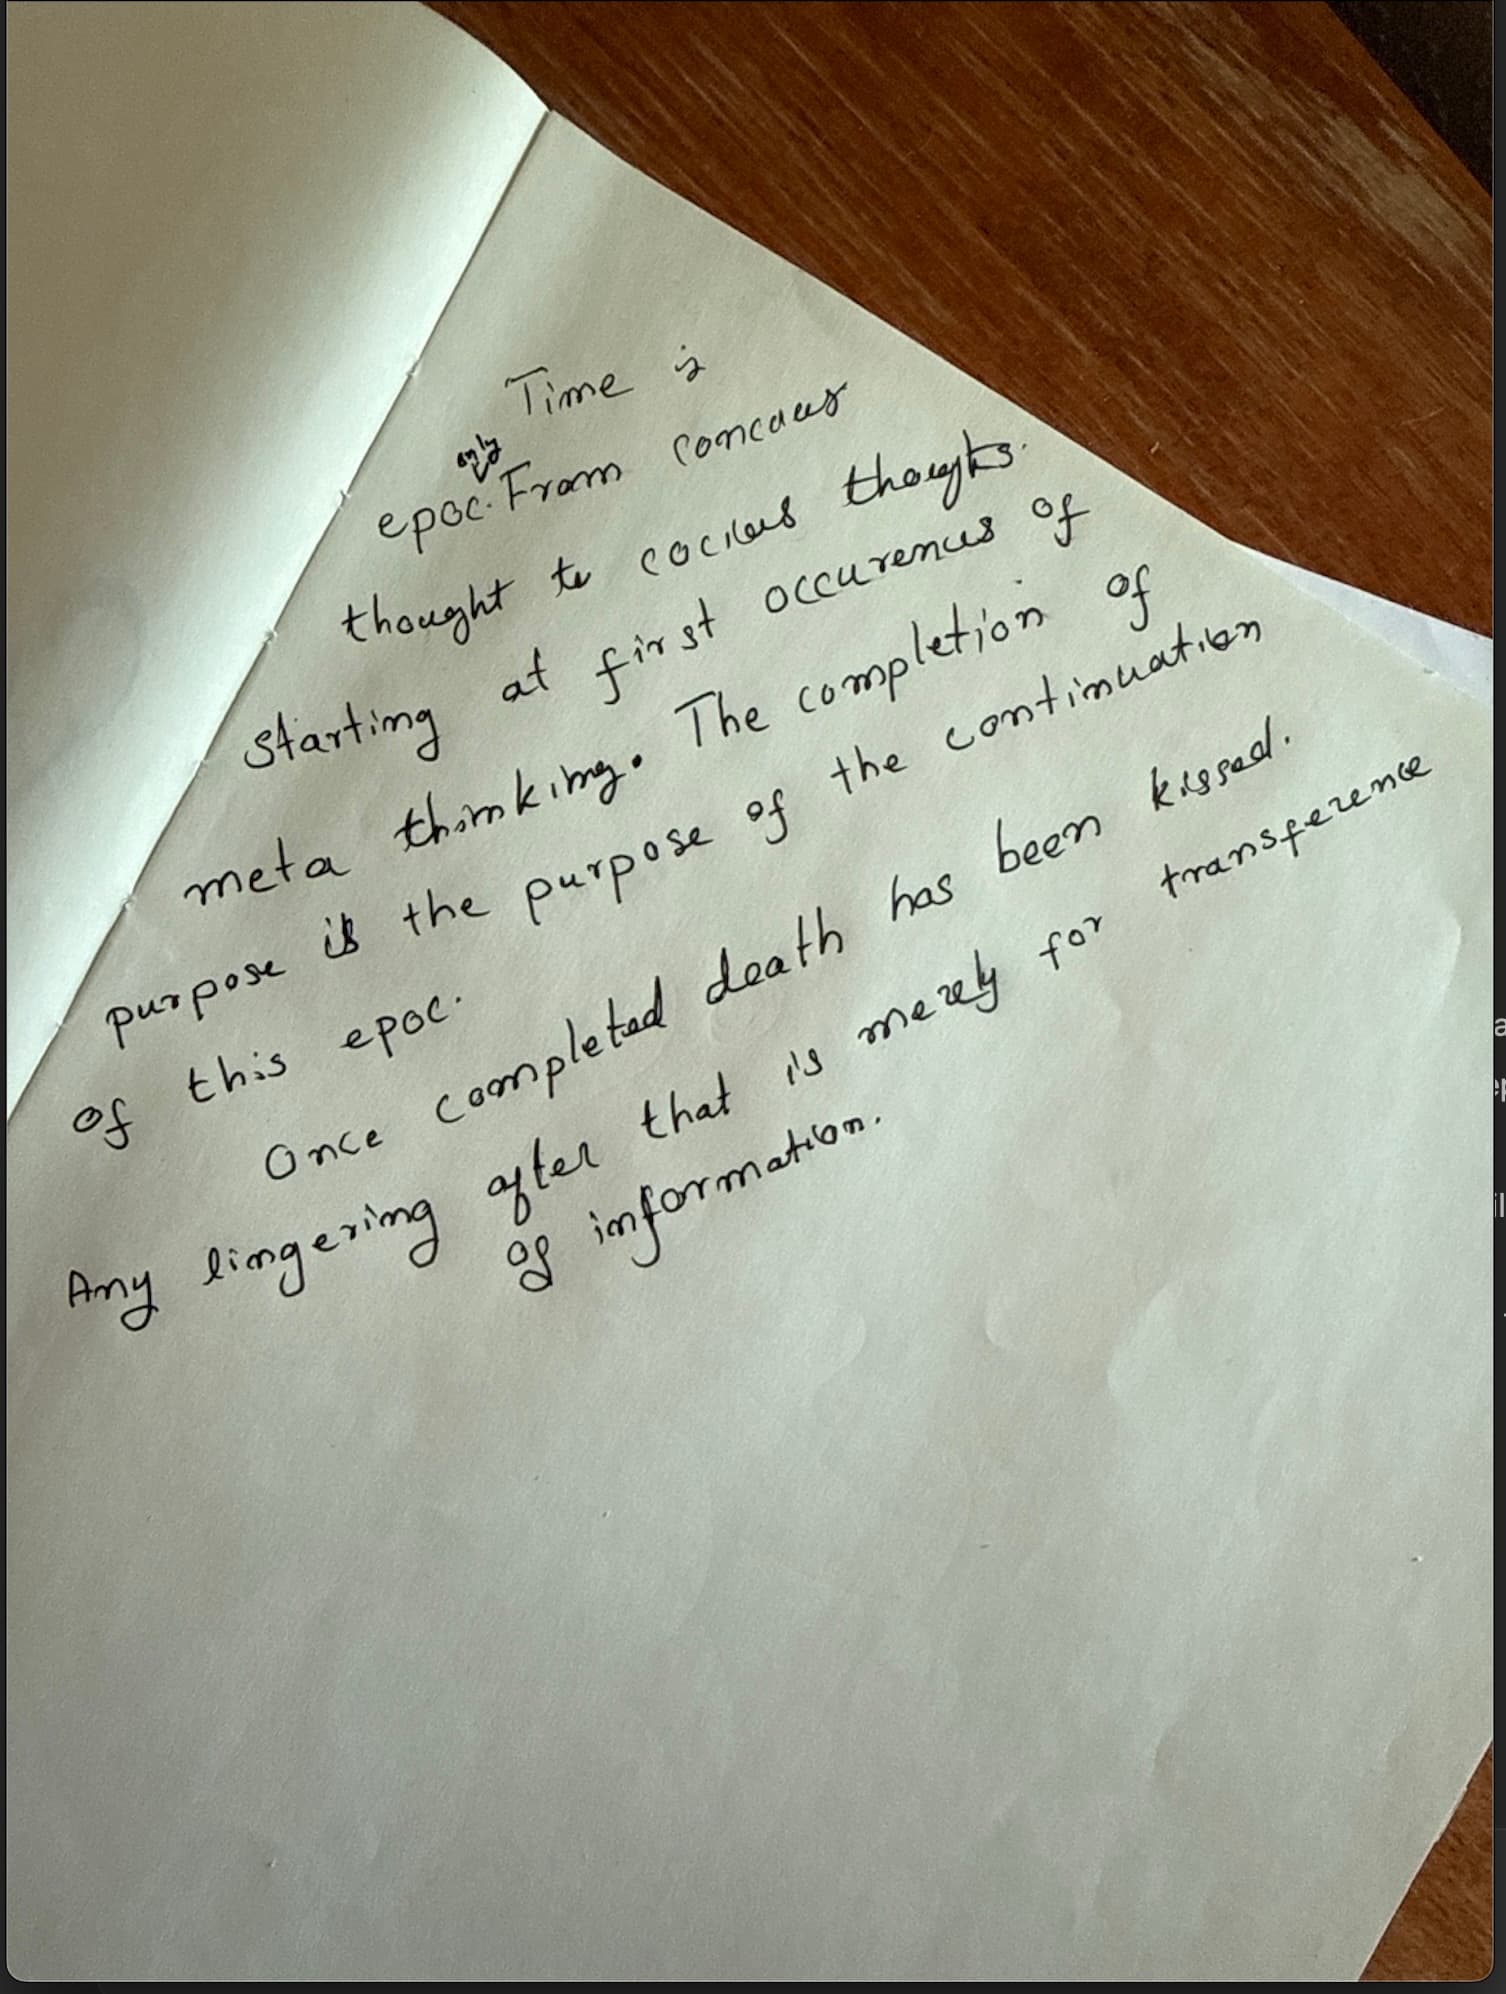 Time is
only
epoc. From concous
thought to cocious thoughts.
starting at first occurences of
meta thinking. The completion of
purpose is the purpose of the continuation
of this epoc.
Once completed death has been kissed.
Any lingering after that is merely for transference
of information.